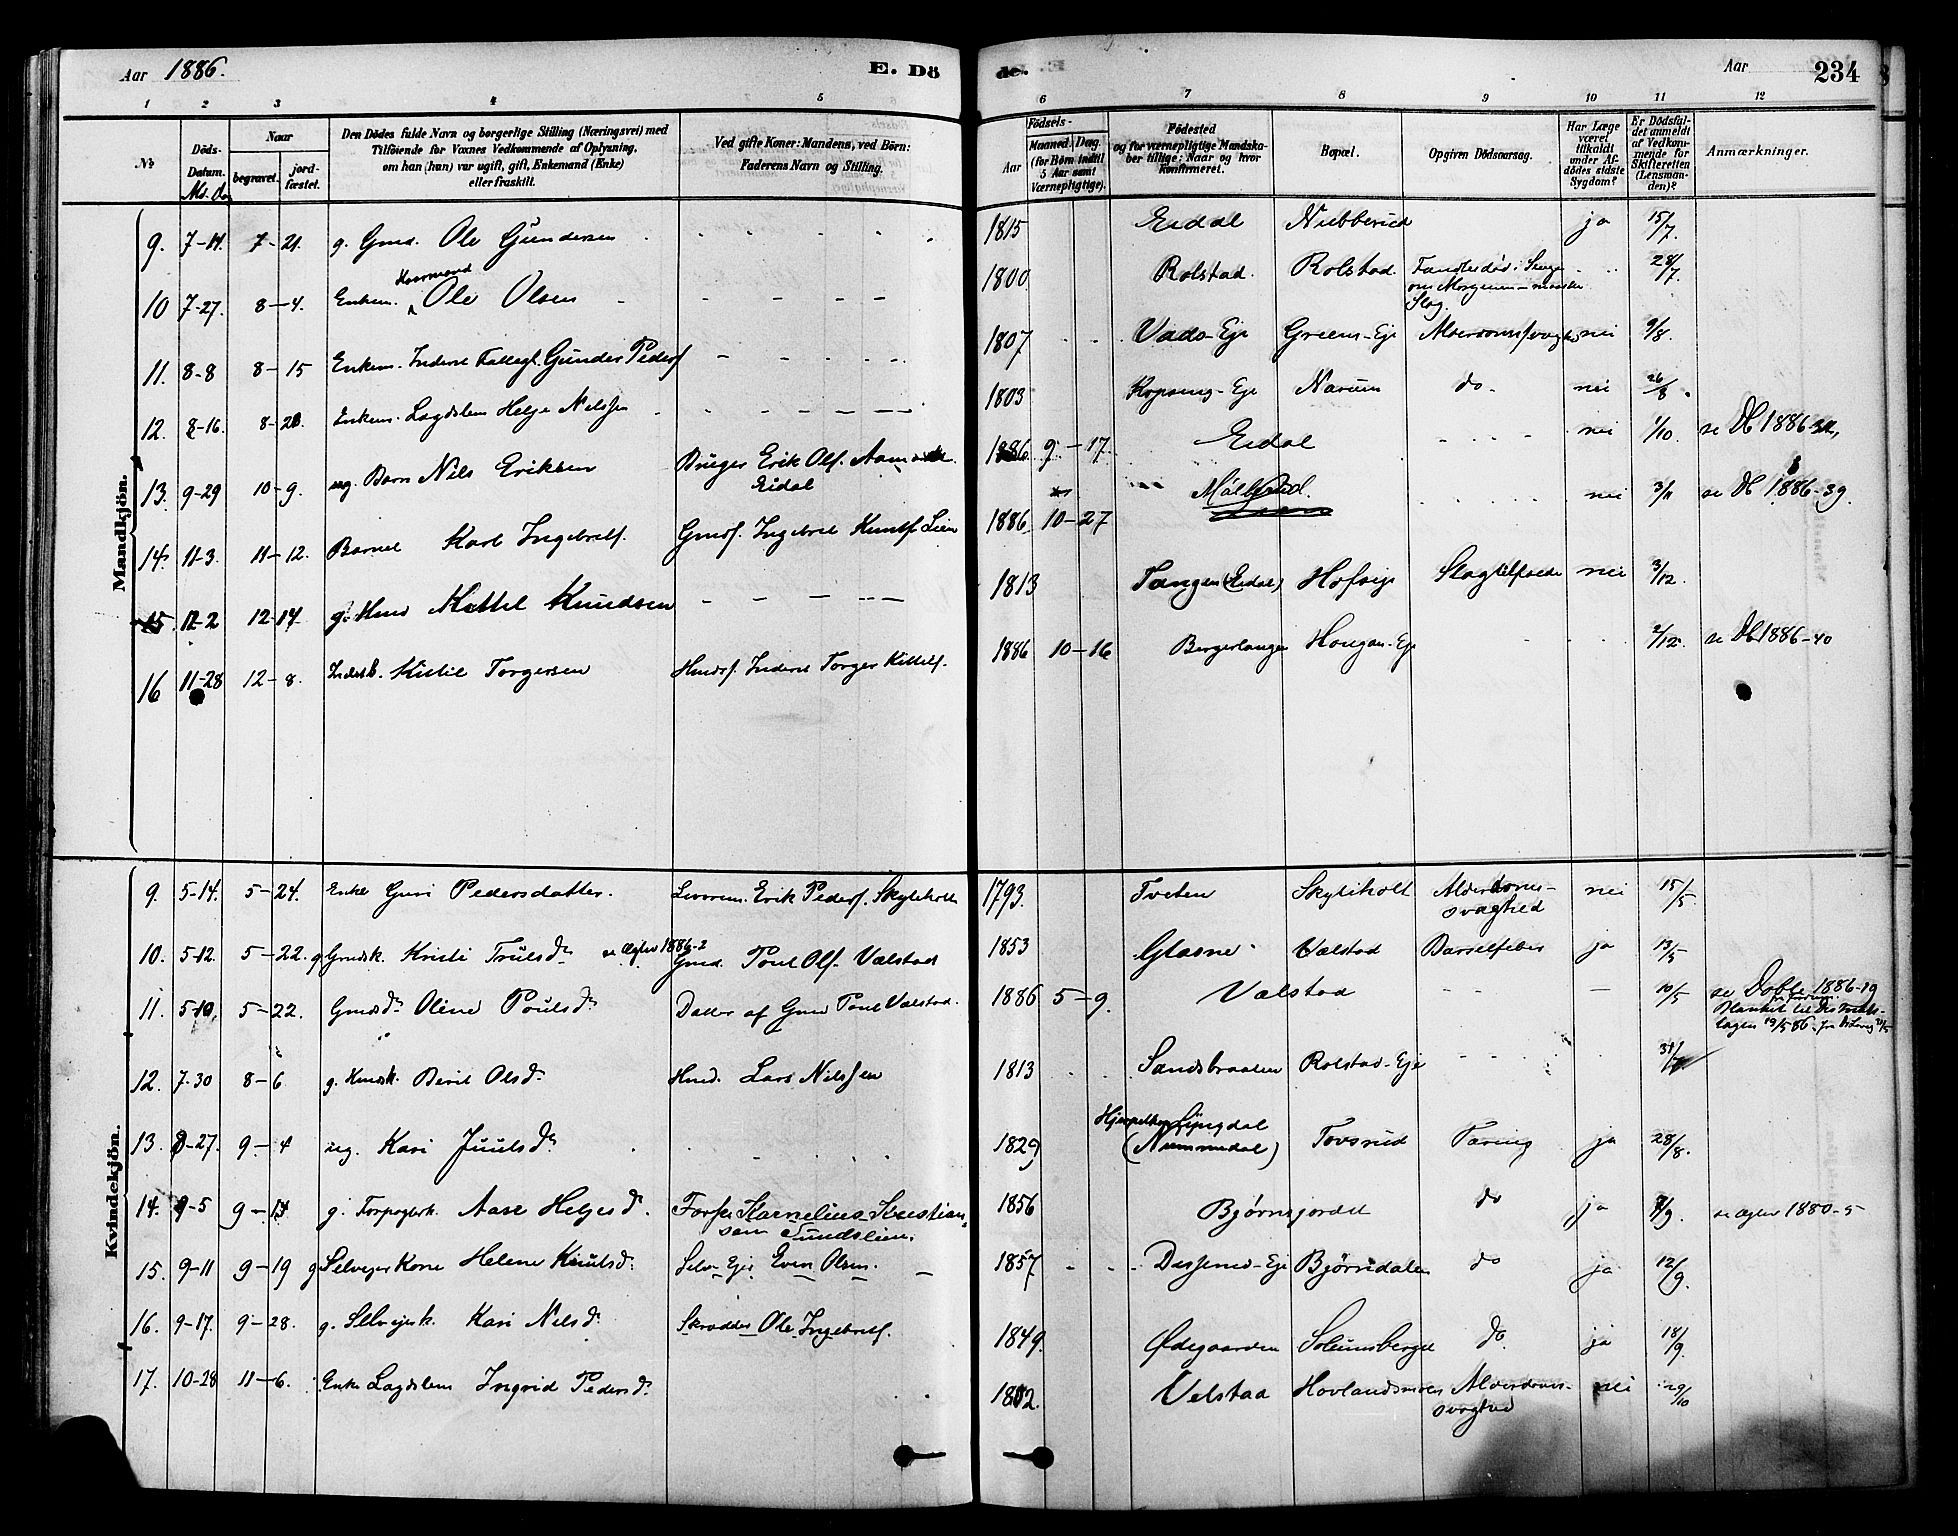 Aar 1886.
E. Dö
de.
Aar
234
1 2 3 4 5
6 7 8 9 10 11 12
No
Döds-Datum. Md. Dag
Naar
begravet.
jord-fæstet.
Den Dödes fulde Navn og borgerlige Stilling (Næringsvei) med
Tilföiende for Voxnes Vedkommende af Oplysning,
om han (hun) var ugift, gift, Enkemand (Enke)
eller fraskilt.
Ved gifte Koner: Mandens, ved Börn:
Faderens Navn og Stilling.
Födsels-
Aar
Maaned, Dag
(for Börn indtil
5 Aar samt
Værnepligtige).
Födested
og for værnepligtige Mandska-
ber tillige: Naar og hvor
konfirmeret.
Bopæl.
Opgiven Dödsaarsag.
Har Læge
været
tilkaldt
under Af-
dödes sidste
Sygdom?
Er Dödsfal-
det anmeldt
af Vedkom-
mende for
Skifteretten
(Lensman-
den)?
Anmærkninger.
Mandkjön.
9. 7-14 7-21. g. Gmd. Ole Gundersen 1815 Eidal Nubberud ja 15/7.
10 7-27. 8-4. Enkem. Ole Olsen 1800 Rolstad. Rolstad. om Morgenen Slag 28/7.
11. 8-8 8-15 Enkem. Inderst Gunder Peders 1807 Vads-Eje Greens-Eje Alderdomssvaghed nei 9/8.
12. 8-16. 8-28. Enkem. Lagdslem Helge Nilssen 1803 Eje Narum do. nei 26/8.
13. 9-29 10-9. ug. Barn Nils Eriksen Erik Ols. Eidal 1886 9-17. Eidal nei 1/10. se Db 1886-32,
14. 11-3. 11-12. Barnet Karl Ingebrets. Ingebret Knuts. Lien 1886 10-27 nei 3/11 se Db 1886-39.
15. 12-2 12-14. g. Hmd Kittil Knudsen 1813 Tangen (Eidal) Hofseje Slagtilfælde nei 3/12.
16 11-28 12-8. Kittil Torgersen Inderst Torger Kittels. 1886 10-16 Bergertangen Hougan-Eje 2/12. se Db 1886-40
Kvindekjön.
9. 5-14. 5-24. Enke Guri Pedersdatter. Erik Peders. Skyteholt 1793. Tveten Skyteholt Alderdoms-svaghed nei 15/5
10. 5-12. 5-22. g Gmdsk. Kristi Trulsd. se Ægtev 1886-2 Gmd. Poul Ols. Vælstad 1853 Glasne Vælstad Barselfeber ja 13/5
11. 5-10, 5-22. Gmdsd. Oline Poulsd. Datter af Gmd Poul Vælstad. 1886 5-9. Vælstad — 10/5 se Dobte 1886-19
12. 7-30 8-6 g. Hmdsk. Berit Olsd. Hmd. Lars Nilssen 1813 Sandsbraaten Rolstad-Eje 31/7
13. 8-27. 9-4 ug. Kari Juulsd. 1829 (Nummedal) Tovsrud Tæring ja 28/8.
14. 9-5 9-14 g. Forpagterk. Aase Helgesd. Forp. Karnelius Kristian-sen Sundslien. 1856 Bjørnsjordet do ja 7/9. se Ægtev 1880-5
15. 9-11 9-19 g Selvejer Kone Helene Knutsd. Selv Ejer Even Olsen. 1857 Eje Bjørndalen do ja 12/9.
16. 9-17. 9-28. g. Selvejerk. Kari Nilsd. Skrædder Ole Ingebrets. 1849. Ødegaarden Solumsberget do. ja 18/9.
17. 10-28 11-6. Enke Lagdslem Ingrid Pedersd. 1812. Velstad Alderdoms-svaghed nei 29/10